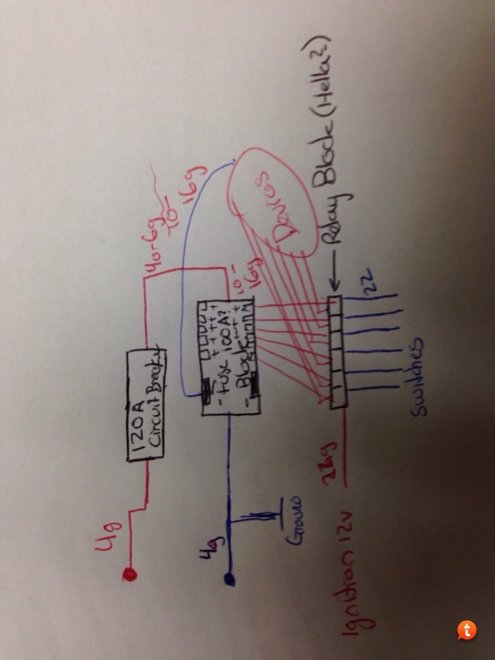 4g
120A
Circuit Breaker
4or6g
10-
16g
4g
Ground
- Fuse 100A?
- Block
+ + + +
10-
16g
Devices
Relay Block (Hella?)
22
Switches
22g
Ignition 12v
t